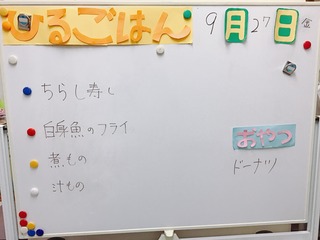 ひるごはん
9月27日㊎
ちらし寿し
白身魚のフライ
煮もの
汁もの
おやつ
ドーナツ